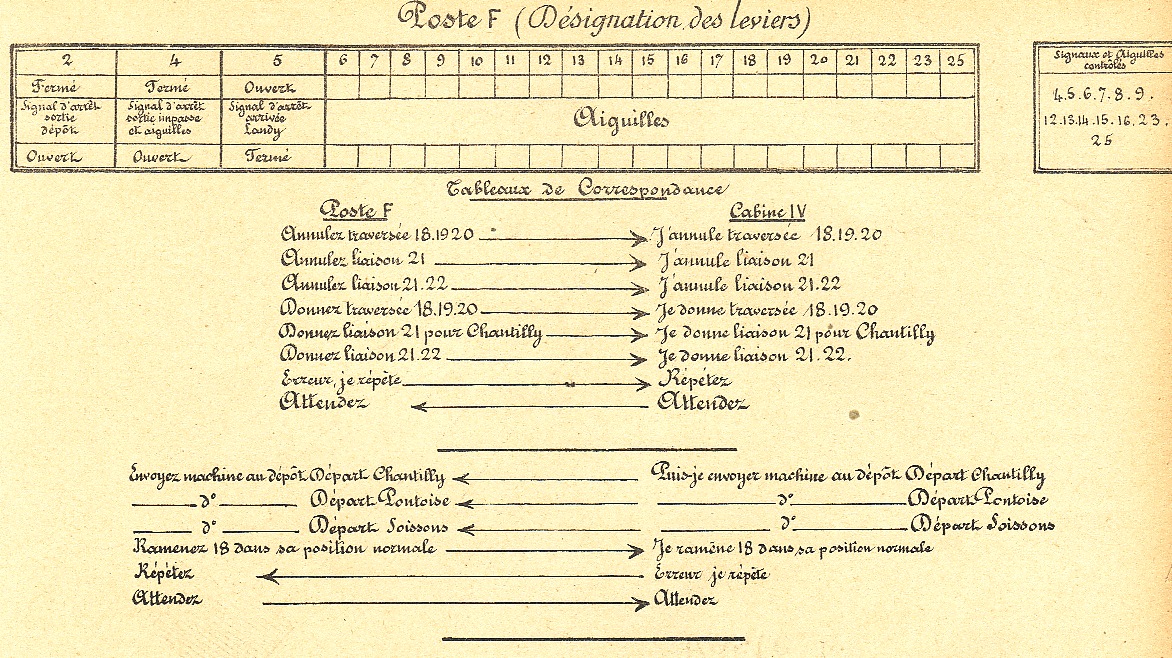 Poste F (Désignation des leviers)
2 4 5 6 7 8 9 10 11 12 13 14 15 16 17 18 19 20 21 22 23 25
Fermé Fermé Ouvert
Signal d'arrêt sortie dépôt
Signal d'arrêt sortie impasse et aiguilles
Signal d'arrêt arrivée Landy
Aiguilles
Ouvert Ouvert Fermé
Signaux et Aiguilles
contrôlés
4.5.6.7.8.9.
12.13.14.15.16.23.
25
Tableaux de Correspondance
Poste F Cabine IV
Annulez traversée 18.19 20 J'annule traversée 18.19.20
Annulez liaison 21 J'annule liaison 21
Annulez liaison 21.22 J'annule liaison 21.22
Donnez traversée 18.19.20 Je donne traversée 18.19.20
Donnez liaison 21 pour Chantilly Je donne liaison 21 pour Chantilly
Donnez liaison 21.22 Je donne liaison 21.22.
Erreur, je répète Répétez
Attendez Attendez
Envoyez machine au dépôt Départ Chantilly Puis-je envoyer machine au dépôt Départ Chantilly
d° Départ Pontoise d° Départ Pontoise
d° Départ Soissons d° Départ Soissons
Ramenez 18 dans sa position normale Je ramène 18 dans sa position normale
Répétez Erreur je répète
Attendez Attendez